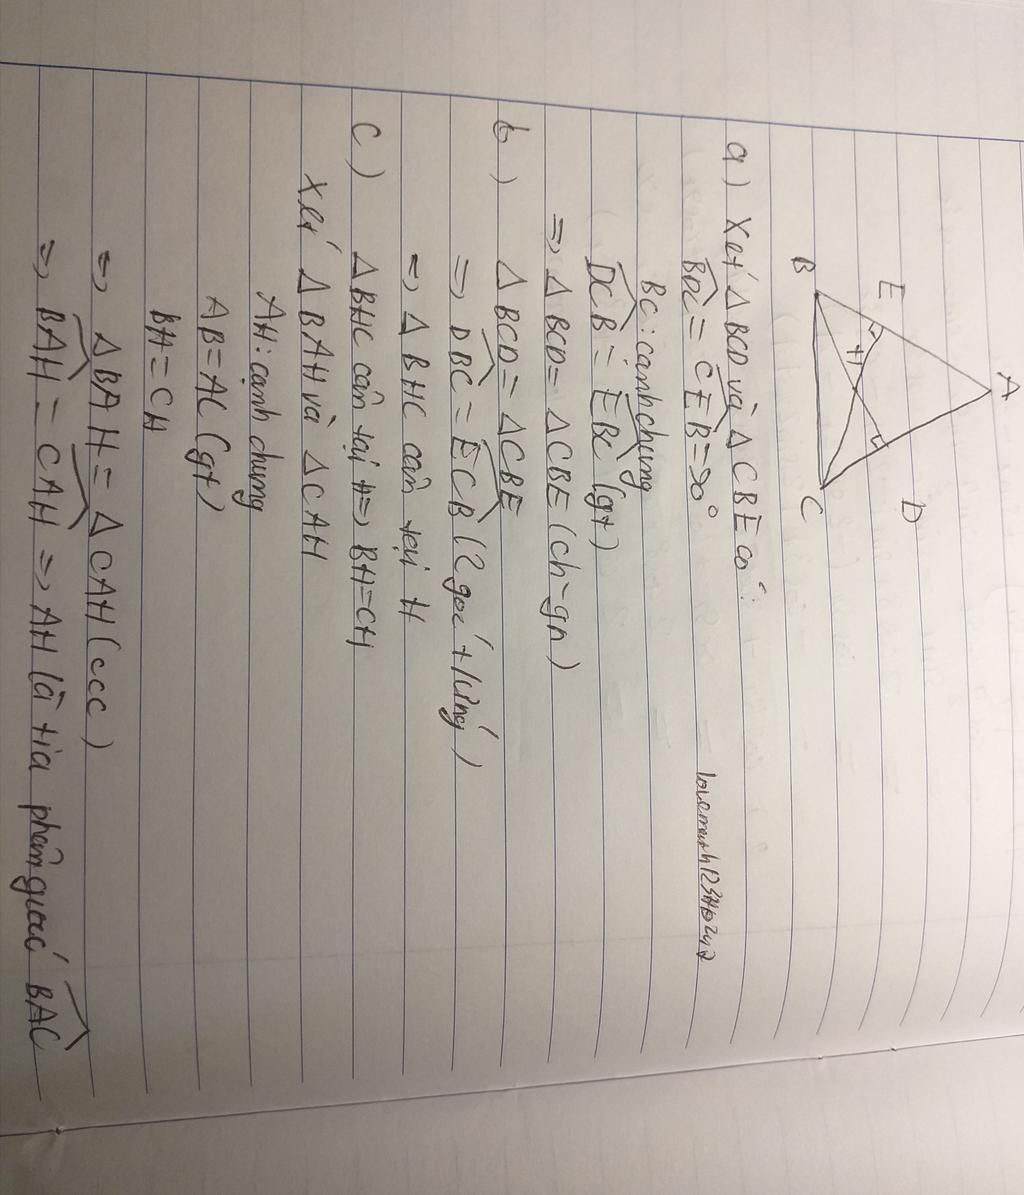 A
E
D
H
B
C
a) Xét △BCD và △CBE có:
BDC = CEB = 90°
BC: cạnh chung
DCB = EBC (gt)
=> △BCD = △CBE (ch-gn)
b) △BCD = △CBE
=> DBC = ECB (2 góc tương ứng)
=> △BHC cân tại H
c) △BHC cân tại H => BH = CH
Xét △BAH và △CAH
AH: cạnh chung
AB = AC (gt)
BH = CH
=> △BAH = △CAH (ccc)
=> BAH = CAH => AH là tia phân giác BAC